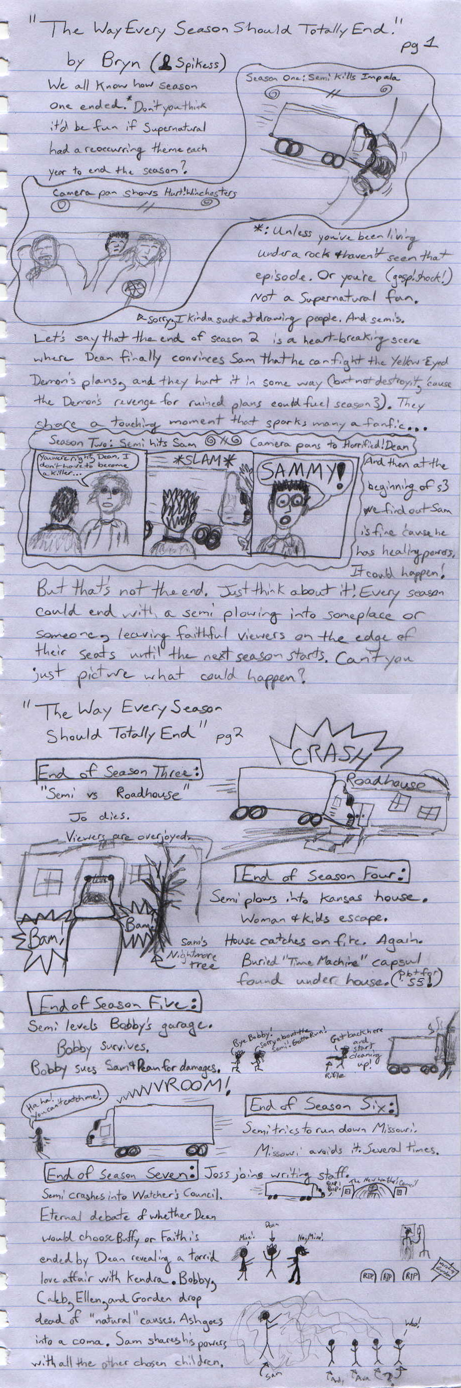 "The Way Every Season Should Totally End."
pg 1
by Bryn (Spikess)
We all know how season
one ended.* Don't you think
it'd be fun if Supernatural
had a reoccurring theme each
year to end the season?
Season One: Semi Kills Impala
Camera pan shows Hurt!Winchesters
*: Unless you've been living
under a rock & haven't seen that
episode. Or you're (gasp! shock!)
Not a Supernatural fan.
sorry, I kinda suck at drawing people. And semis.
Let's say that the end of season 2 is a heart-breaking scene
where Dean finally convinces Sam that he can fight the Yellow-Eyed
Demon's plans, and they hurt it in some way (but not destroy it, 'cause
the Demon's revenge for ruined plans could fuel season 3). They
share a touching moment that sparks many a fanfic...
Season Two: Semi hits Sam
Camera pans to Horrified!Dean
You're right, Dean, I
don't have to become
a killer...
*SLAM*
SAMMY!
And then at the
beginning of s3
we find out Sam
is fine 'cause he
has healing powers.
It could happen!
But that's not the end. Just think about it! Every season
could end with a semi plowing into someplace or
someone, leaving faithful viewers on the edge of
their seats until the next season starts. Can't you
just picture what could happen?
"The Way Every Season
Should Totally End" pg2
CRASH
Roadhouse
End of Season Three:
"Semi vs Roadhouse"
Jo dies.
Viewers are overjoyed.
Bam!
Bam!
Sam's
Nightmare
tree
End of Season Four:
Semi plows into Kansas house.
Woman & kids escape.
House catches on fire. Again.
Buried "Time Machine" capsul
found under house. (Plot for S5!)
End of Season Five:
Semi levels Bobby's garage.
Bobby survives.
Bobby sues Sam & Dean for damages.
Bye Bobby!
Sorry about the
semi! Gotta Run!
Get back here
and start
cleaning
up!
Rifle
Ha ha!
You can't catch me!
VROOM!
End of Season Six:
Semi tries to run down Missouri.
Missouri avoids it. Several times.
End of Season Seven: Joss joins writing staff.
Semi crashes into Watcher's Council.
Eternal debate of whether Dean
would choose Buffy or Faith is
ended by Dean revealing a torrid
love affair with Kendra. Bobby,
Caleb, Ellen, and Gorden drop
dead of "natural" causes. Ash goes
into a coma. Sam shares his powers
with all the other chosen children.
Mine!
Dean
No, Mine!
RIP
RIP
RIP
Sam
Woo!
Ava